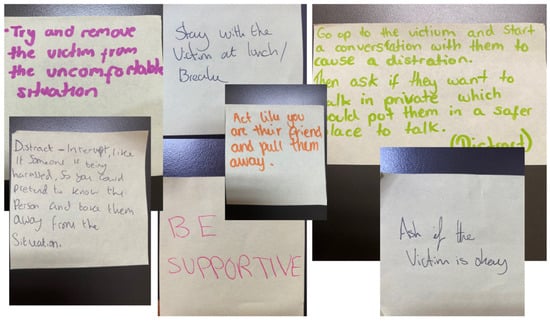 - Try and remove
the victim from
the uncomfortable
situation
Stay with the
Victim at lunch/
Break
Go op to the victium and start
a converstation with them to
cause a distration.
Then ask if they want to
talk in private which
would put them in a safer
place to talk.
(Distract)
Act like you
are their friend
and pull them
away.
Distract - Interrupt, like
if someone is being
harassed, so you could
pretend to know the
Person and take them
away from the
Situation.
BE
SUPPORTIVE
Ask if the
Victim is okay